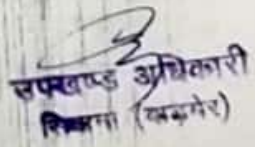 उपखण्ड अधिकारी
(बाड़मेर)